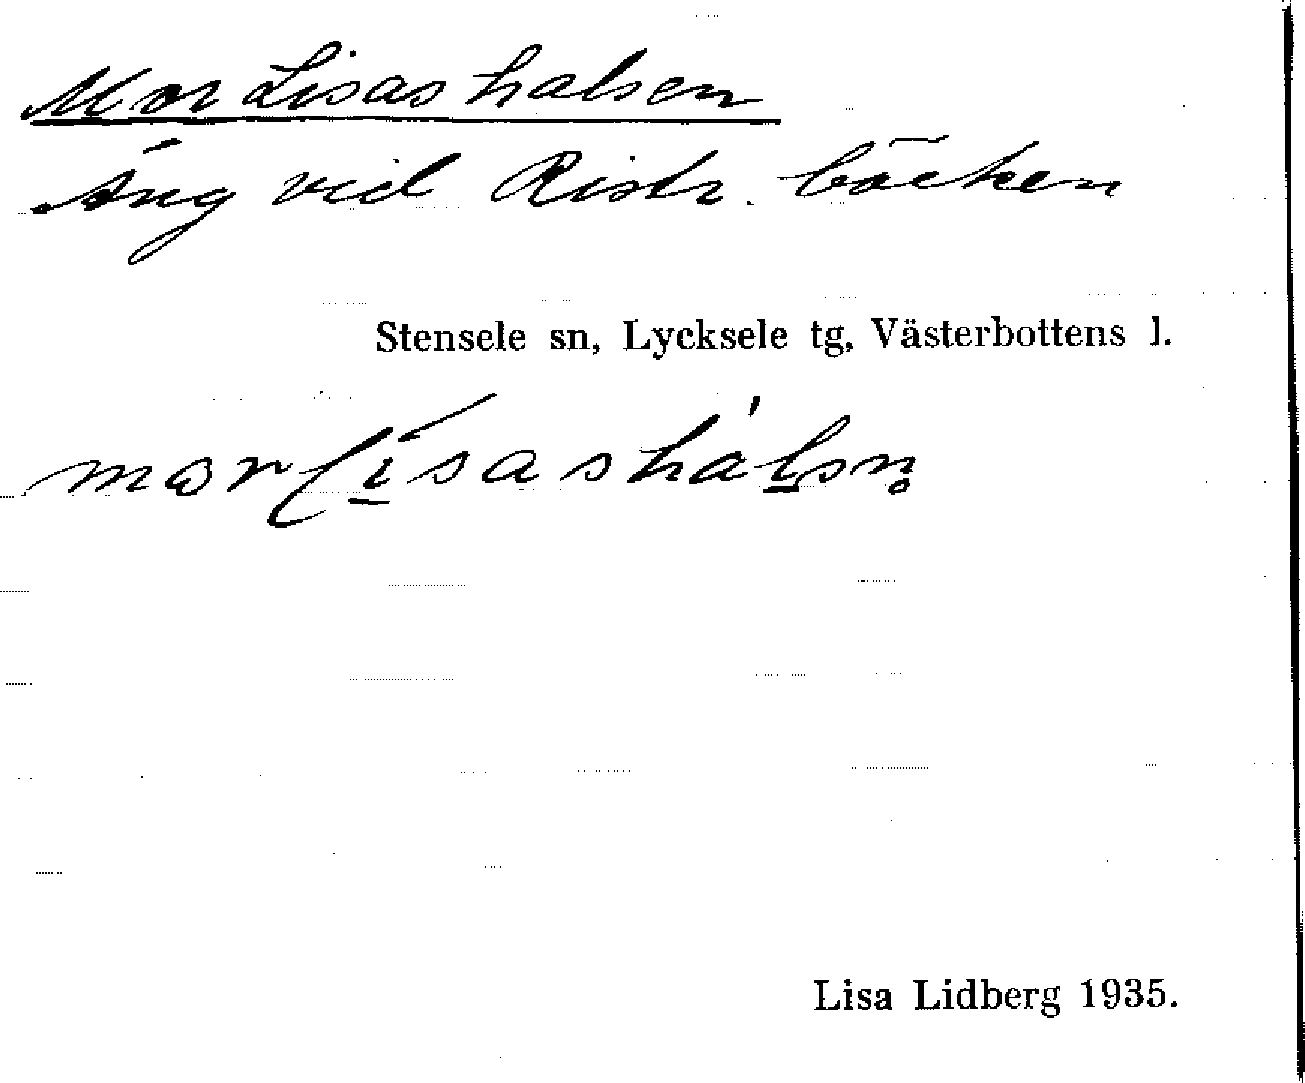 Mor Lisashalsen
Äng vid Ristr. bäcken
Stensele sn, Lycksele tg, Västerbottens l.
morlísasha̍lsn̥
Lisa Lidberg 1935.